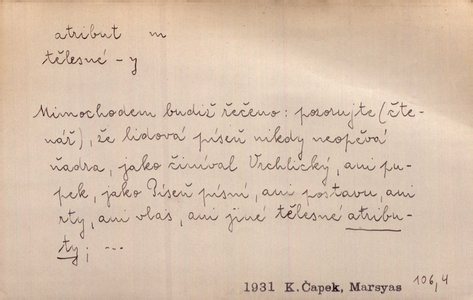 atribut m
tělesné -y
Mimochodem budiž řečeno: pozorujte (čte-
nář), že lidová píseň nikdy neopěvá
ňadra, jako činíval Vrchlický, ani pu-
pek, jako Píseň písní, ani postavu, ani
rty, ani vlas, ani jiné tělesné atribu-
ty; ---
1931 K.Čapek, Marsyas 106,4